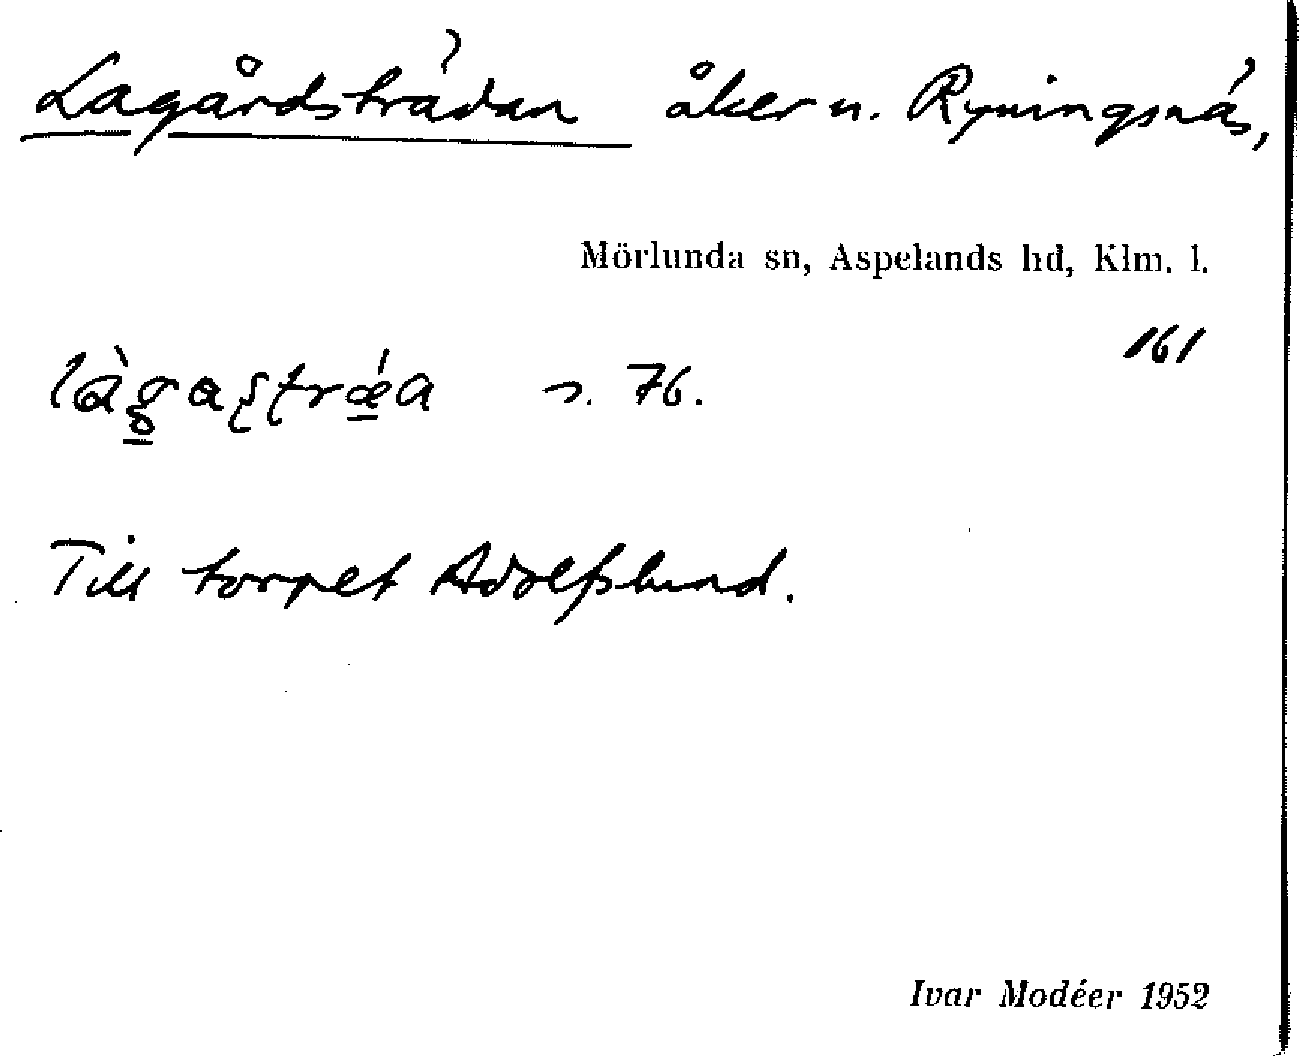 Lagårdsträdan åker n. Ryningsnäs,
Mörlunda sn, Aspelands hd, Klm. l.
161
s. 76.
Till torpet Adolfslund.
Ivar Modéer 1952